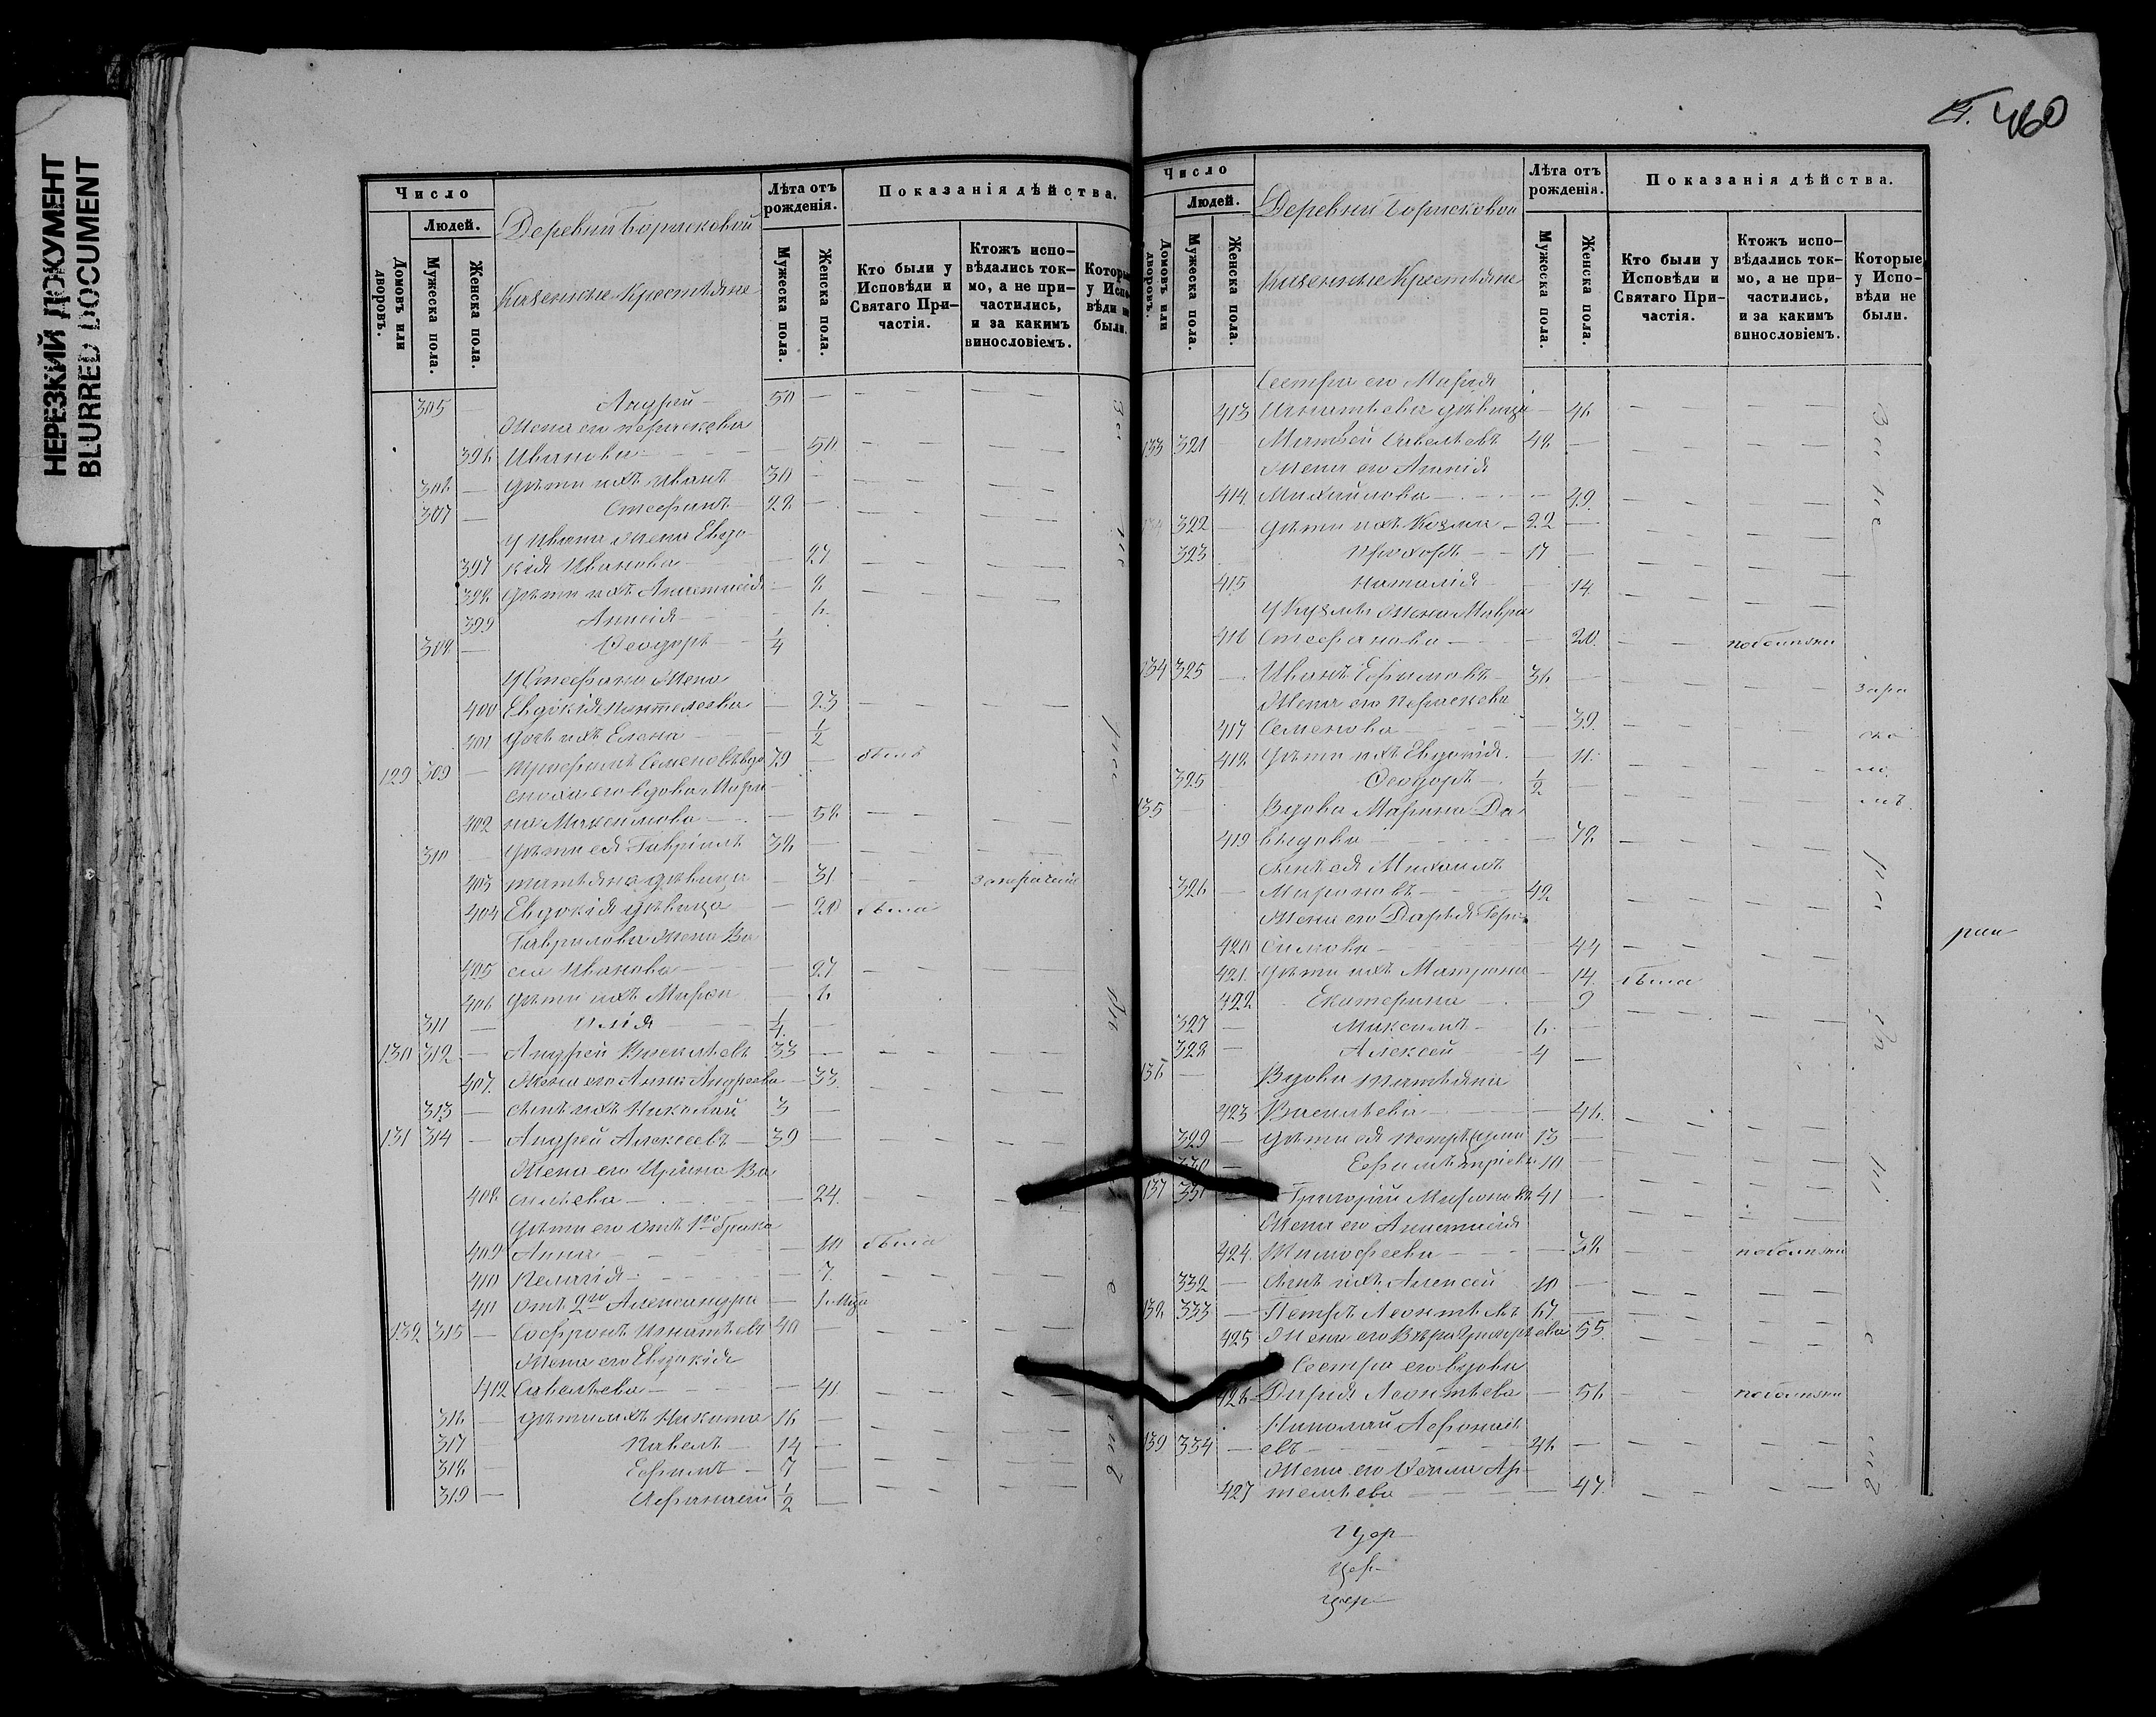 НЕРЕЗКИЙ ДОКУМЕНТ
BLURRED DOCUMENT
Число
Людей.
Домовъ или дворовъ.
Мужеска пола.
Женска пола.
Деревни Борисковой
Казенные Крестьяне
Лѣта отъ рожденія.
Мужеска пола.
Женска пола.
Показанія дѣйства.
Кто были у Исповѣди и Святаго Причастія.
Ктожъ исповѣдались токмо, а не причастились, и за какимъ винословіемъ.
Которые у Исповѣди не были.
305 — Андрей — 50 —
Жена его Параскева
396 Иванова — 50
306 — Дѣти ихъ Иванъ 30 —
307 — Стефанъ — 28 —
У Ивана жена Евдо-
397 кія Иванова — 27
398 Дѣти ихъ Анастасія — 8
399 Анисія — 6
308 — Ѳеодоръ — 1/4
У Стефана жена
400 Евдокія Пантелеева — 23
401 Дочь ихъ Елена — 1/2
129 309 — Трофимъ Семеновъ вдо 79 — былъ
Сноха его вдова Мари-
402 на Максимова — 58
310 — Дѣти ея Гавріилъ 38 —
403 Татьяна дѣвица — 31
404 Евдокія дѣвица — 20 была
Гаврилова жена Ва
405 са Иванова — 27
406 Дѣти ихъ — 6
311 — Илія 1/4 —
130 312 — Андрей Васильевъ 33 —
407 Жена его Анна Андреева — 33
313 — Сынъ ихъ Николай 3 —
131 314 — Андрей Алексеевъ — 39 —
Жена его Ирина Ва
408 сильева — 24
Дѣти его отъ 1го брака
409 Анна — 10 была
410 Пелагія — 7
411 Отъ 2го Александра —
132 315 — Софронъ Игнатьевъ 40 —
Жена его Евдокія
412 Савельева — 41
316 — Дѣти ихъ Никита 16 —
317 Павелъ — 14 —
318 Ефимъ — 7 —
319 — Афанасій 1/2 —
460
Число
Людей.
Домовъ или дворовъ.
Мужеска пола.
Женска пола.
Деревни Борисковой
Казенные Крестьяне
Лѣта отъ рожденія.
Мужеска пола.
Женска пола.
Показанія дѣйства.
Кто были у Исповѣди и Святаго Причастія.
Ктожъ исповѣдались токмо, а не причастились, и за какимъ винословіемъ.
Которые у Исповѣди не были.
Сестра его Марія
413 Игнатьева дѣвица — 46
133 321 — Матвей Савельевъ 48 —
Жена его Анисія
414 Михайлова — 49
322 — Дѣти ихъ Козма — 22 —
323 Прохоръ — 17 —
415 Наталія — 14
У Кузмы жена Мавра
416 Стефанова — 20
134 325 — Иванъ Ефимовъ — 36 —
Жена его Параскева
417 Семенова — 39
418 Дѣти ихъ Евдокія — 11
325 Ѳеодоръ — 1/2 —
135 — Вдова Марина Да-
419 выдова — 78
Сынъ ея Михаилъ
326 — Мироновъ — 48
Жена его Дарья Гера-
420 симова — 44
421 Дѣти ихъ Матрона — 14 была
422 Екатерина — 9
327 — Максимъ — 6 —
328 — Алексей — 4 —
136 — Вдова Татьяна
423 Васильева — 46
329 — Дѣти ея Петръ 13 —
330 — Ефимъ 10 —
137 331 — Григорій Мироновъ 41 —
Жена его Анастасія
424 Тимофеева — 38
332 — Сынъ ихъ Алексей 10 —
138 333 — Петръ Леонтьевъ 67 —
425 Жена его Вѣра Григорьева 55
Сестра его вдова
426 Дарья Леонтьева — 56
Николай Афонась
139 334 — евъ — 46 —
Жена его Ар-
427 темьева — 47